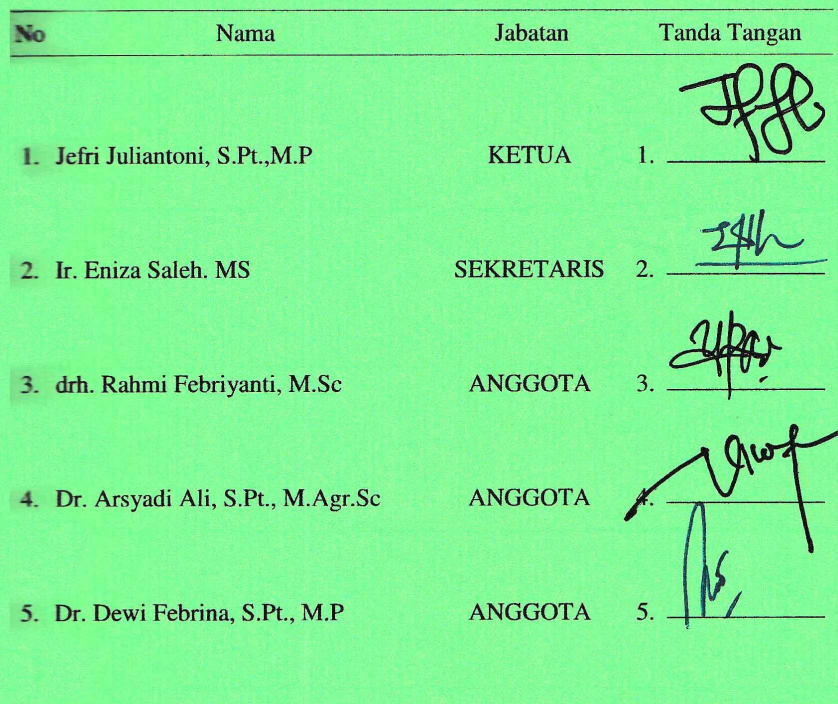 No Nama Jabatan Tanda Tangan
1. Jefri Juliantoni, S.Pt.,M.P KETUA 1.
2. Ir. Eniza Saleh. MS SEKRETARIS 2.
3. drh. Rahmi Febriyanti, M.Sc ANGGOTA 3.
4. Dr. Arsyadi Ali, S.Pt., M.Agr.Sc ANGGOTA 4.
5. Dr. Dewi Febrina, S.Pt., M.P ANGGOTA 5.